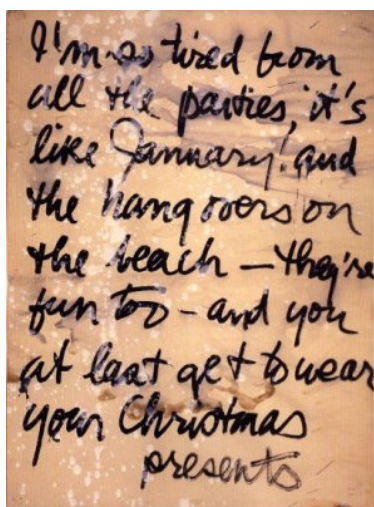 I'm so tired from
all the parties, it's
like January! and
the hangovers on
the beach – they're
fun too – and you
at last get to wear
your Christmas
presents